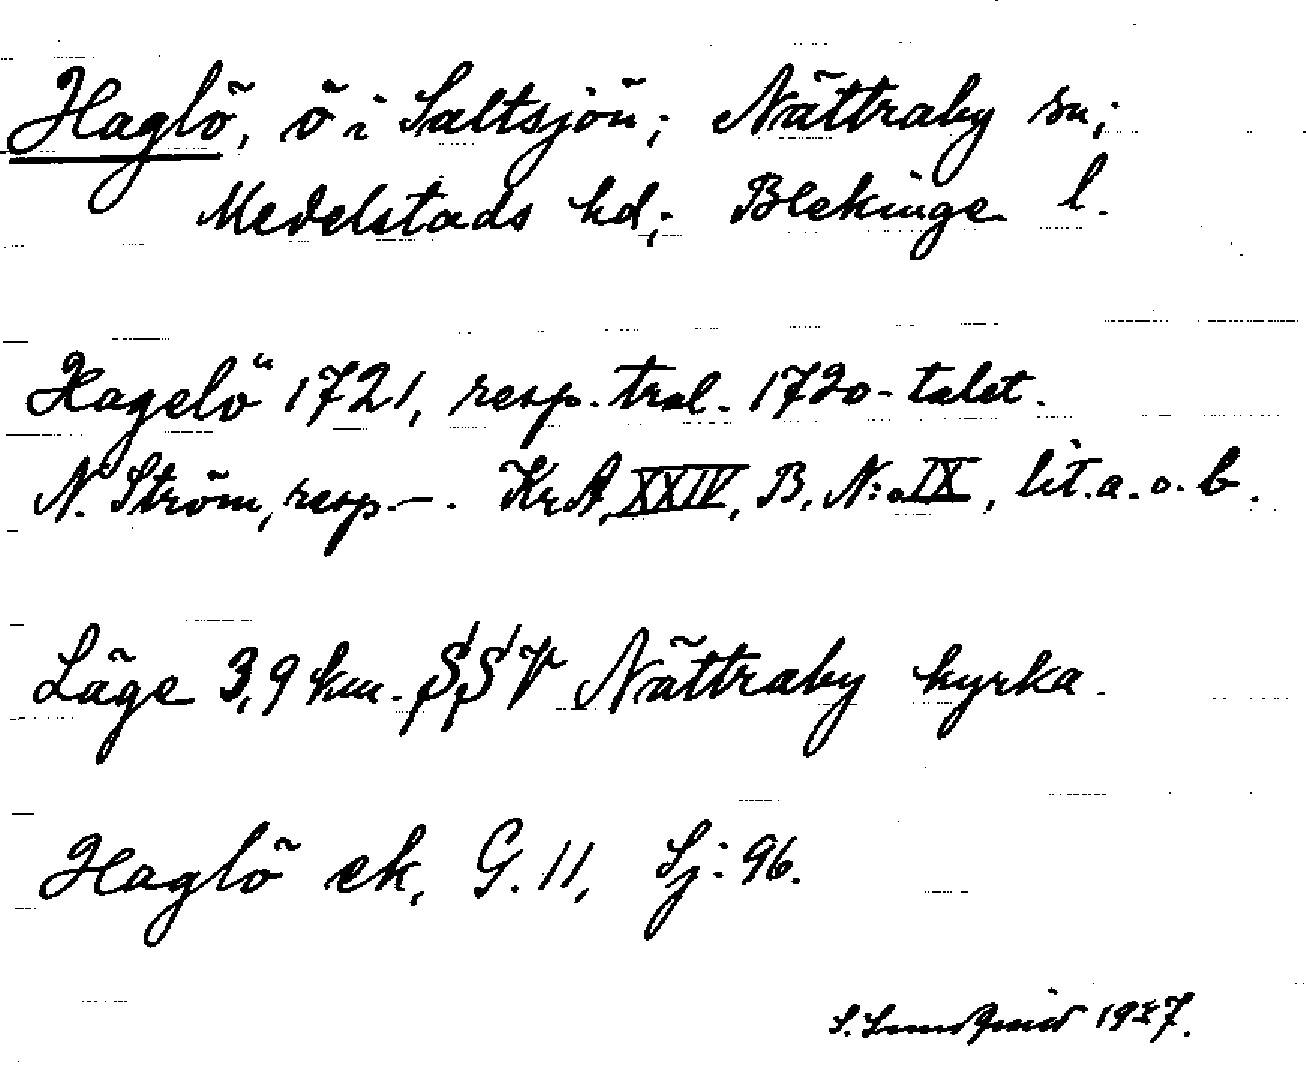 Haglö, ö i Saltsjön; Nättraby sn;
Medelstads hd; Blekinge l.
Hagelö 1721, resp. tral. 1720-talet.
N. Ström, resp. –. KrA, XXIV, B, N:o IX, lit. a. o. b.
Läge 3,9 km. SSV Nättraby kyrka.
Haglö ek, G. 11, Sj: 96.
S. Lundqvist